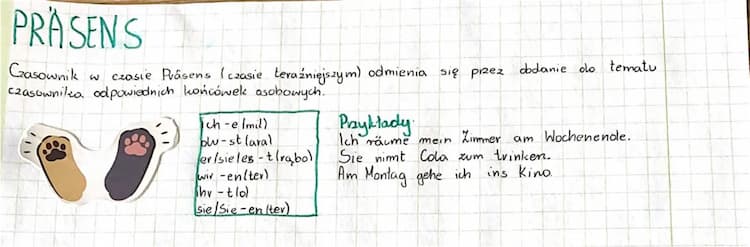 PRÄSENS
Czasownik w czasie Präsens (czasie teraźniejszym) odmienia się przez dodanie do tematu
czasownika odpowiednich końcówek osobowych.
ich -e (mil)
du -st (ara)
er/sie/es -t (rąbo)
wir -en(ter)
ihr -t(o)
sie/Sie -en(ter)
Przykłady:
Ich räume mein Zimmer am Wochenende.
Sie nimt Cola zum trinken.
Am Montag gehe ich ins Kino.